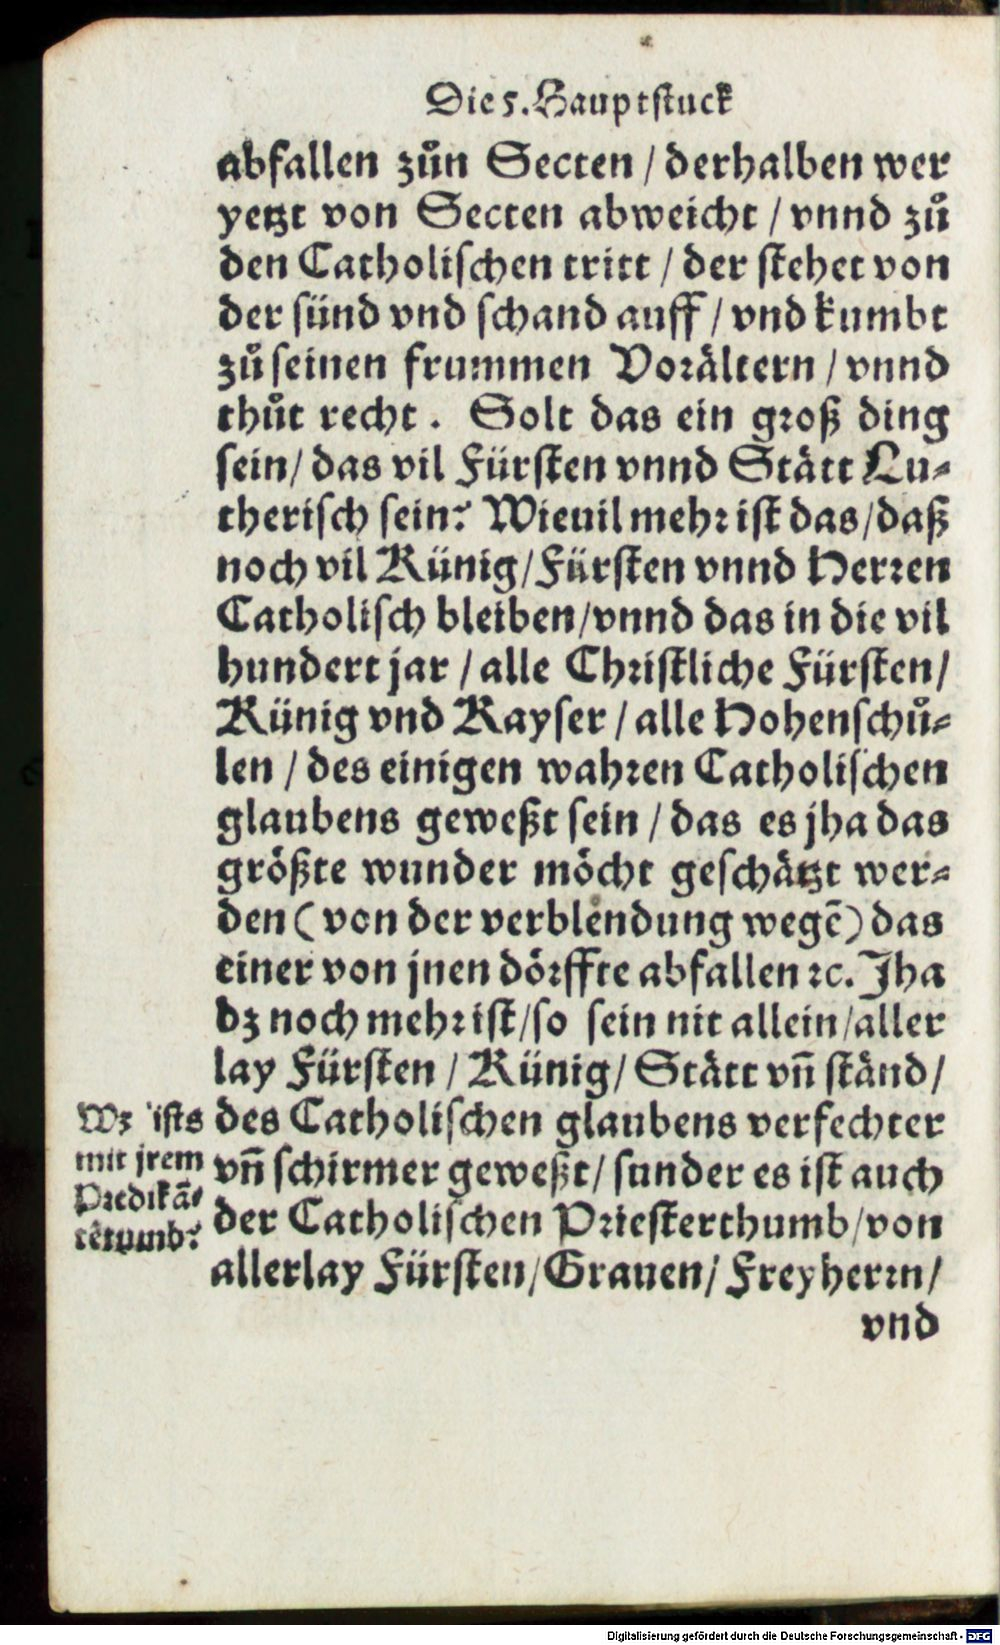 Die 5. Hauptstuck
abfallen zůn Secten / derhalben wer
yetzt von Secten abweicht / vnnd zů
den Catholischen tritt / der stehet von
der sünd vnd schand auff / vnd kumbt
zů seinen frummen Vorältern / vnnd
thůt recht. Solt das ein groß ding
sein / das vil Fürsten vnnd Stätt Lu-
therisch sein? Wieuil mehr ist das / daß
noch vil Künig / Fürsten vnnd Herren
Catholisch bleiben / vnnd das in die vil
hundert jar / alle Christliche Fürsten /
Künig vnd Kayser / alle Hohenschů-
len / des einigen wahren Catholischen
glaubens geweßt sein / das es jha das
größte wunder möcht geschätzt wer-
den ( von der verblendung wegē) das
einer von jnen dörffte abfallen ꝛc. Jha
dz noch mehr ist / so sein nit allein / aller
lay Fürsten / Künig / Stätt vn̄ ständ /
des Catholischen glaubens verfechter
vn̄ schirmer geweßt / sunder es ist auch
der Catholischen Priesterthumb / von
allerlay Fürsten / Grauen / Freyherrn /
vnd
Wz ists
mit jrem
Predikā-
tētumb?
Digitalisierung gefördert durch die Deutsche Forschungsgemeinschaft - DFG